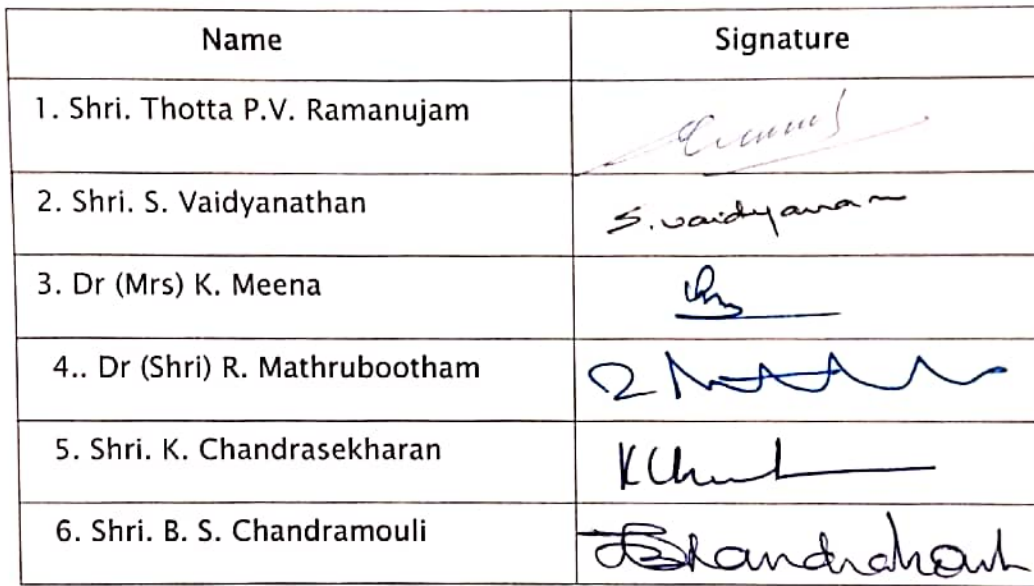 Name Signature
1. Shri. Thotta P.V. Ramanujam
2. Shri. S. Vaidyanathan S. Vaidyanathan
3. Dr (Mrs) K. Meena
4.. Dr (Shri) R. Mathrubootham
5. Shri. K. Chandrasekharan
6. Shri. B. S. Chandramouli